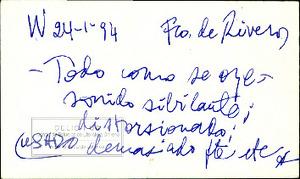 W 24-1-94 Fco. de Riveros
- Todo como se oye -
sonido sibilante;
distorsionado;
(USADO demasiado fte. etc